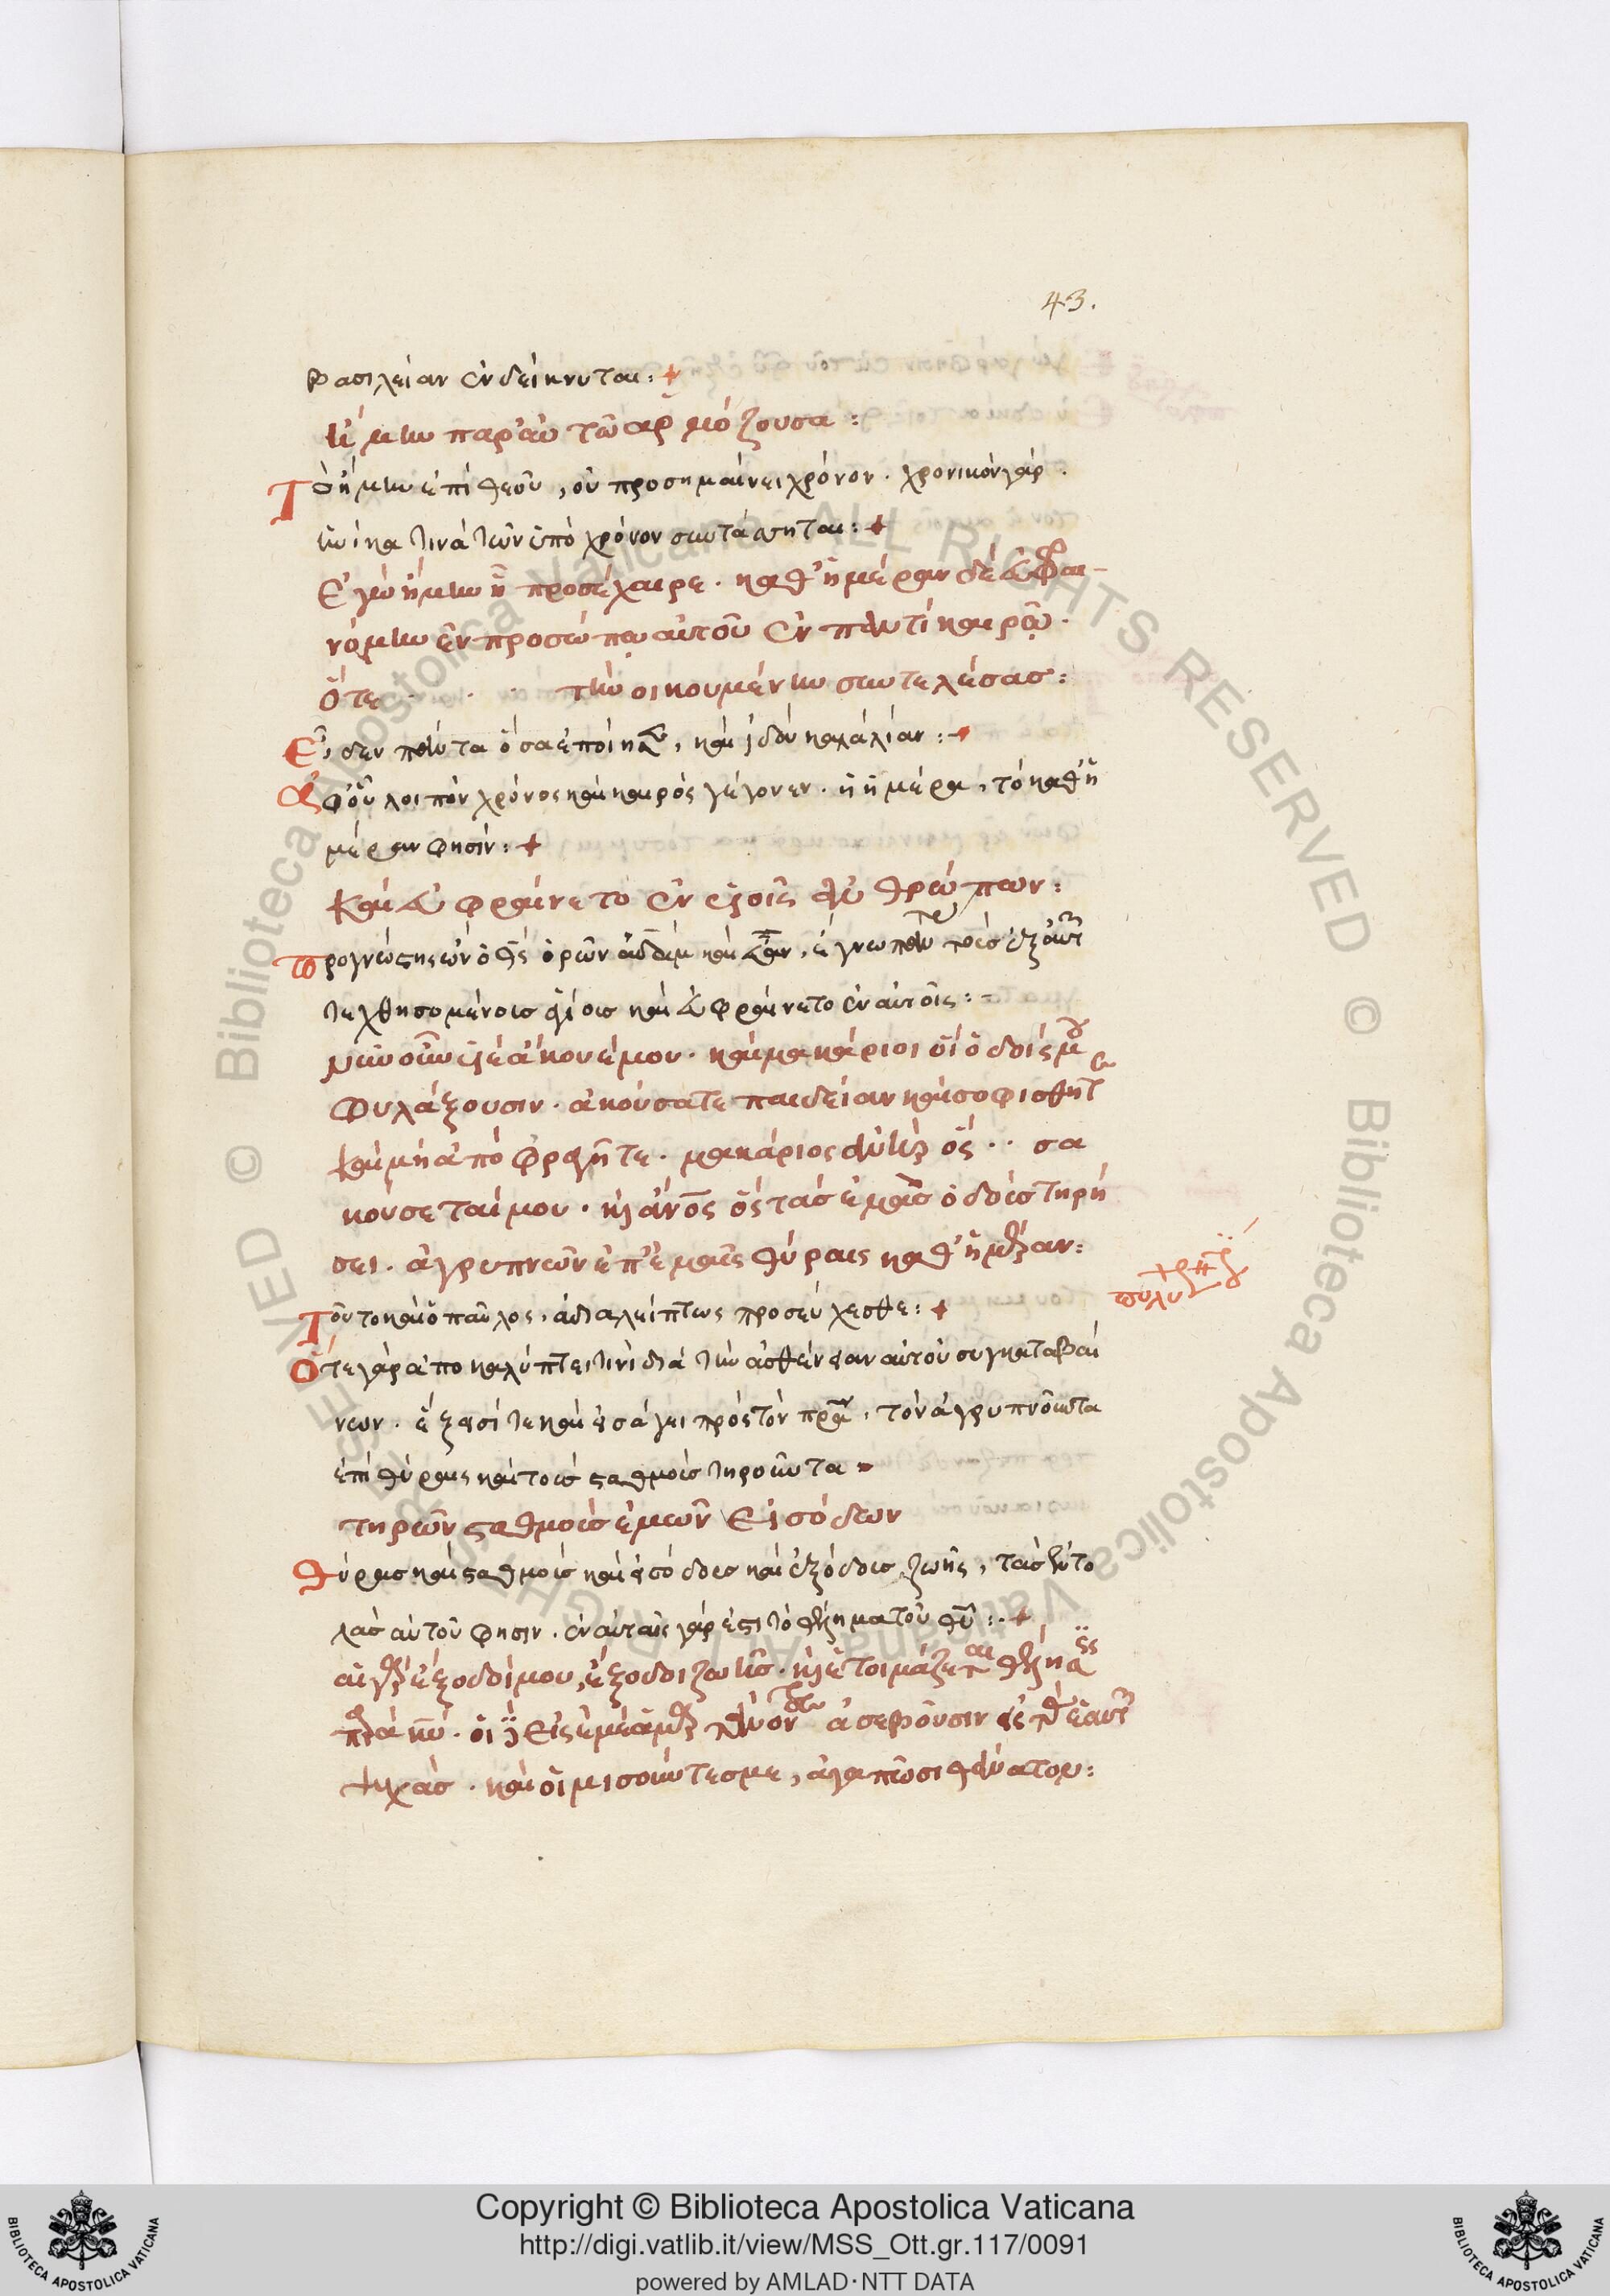 43.
βασιλείαν ἐνδείκνυται:+
ἤμην παρ' αὐτῶ ἁρμόζουσα:
Τὸ ἤμην ἐπὶ θεοῦ, οὐ προσημαίνει χρόνον. χρονικὸν γὰρ.
ἡνίκα τινὰ τῶν ὑπὸ χρόνον συντάσσηται:+
Ἐγὼ ἤμην ᾗ προσέχαιρε. καθ' ἡμέραν δὲ εὐφραι-
νόμην ἐν προσώπω αὐτοῦ ἐν παντὶ καιρῶ.
ὅτε . . . τὴν οἰκουμένην συντελέσας:
Εἶδεν πάντα ὅσα ἐποίησεν, καὶ ἰδοὺ καλὰ λίαν:+
Ἀφ' οὗ λοιπὸν χρόνος καὶ καιρὸς γέγονεν. ἡ ἡμέρα, τὸ καθ' ἡ
μέραν φησίν:+
Καὶ εὐφραίνετο ἐν υἱοῖς ἀνθρώπων:
Προγνώστης ὢν ὁ θς ὁρῶν ἀδὰμ καὶ εὔαν, ἔγνω πάντας τοὺς ἐξ αὐτ
τεχθησομένους ἁγίους καὶ εὐφραίνετο ἐν αὐτοῖς:
Νῦν οὖν υἱὲ ἄκουέ μου. καὶ μακάριοι οἳ ὁδούς μου
φυλάξουσιν. ἀκούσατε παιδείαν καὶ σοφίσθητε
καὶ μὴ ἀποφραγῆτε. μακάριος ἀνὴρ ὃς .. σα
κούσεταί μου. κ ἄνος ὃς τὰς ἐμὰς ὁδοὺς τηρή
σει. ἀγρυπνῶν ἐπ' ἐμαῖς θύραις καθ' ἡμέραν:
Τοῦτο καὶ ὁ παῦλος, ἀδιαλείπτως προσεύχεσθε:+
Ὅτε γὰρ ἀποκαλύπτει τινὶ διὰ τὴν ἀσθένειαν αὐτοῦ συγκαταβαί
νων. ἔξεισί τε καὶ εἰσάγει πρὸς τὸν πρα, τὸν ἀγρυπνοῦντα
ἐπὶ θύραις καὶ τοὺς σταθμοὺς τηροῦντα
τηρῶν σταθμοὺς ἐμῶν εἰσόδων
Θύρας καὶ σταθμοὺς καὶ εἰσόδους καὶ ἐξόδους ζωῆς, τὰς ἐντο
λὰς αὐτοῦ φησιν. ἐν αὐταῖς γάρ ἐστι τὸ θέλημα τοῦ θυ:.+
αἱ γὰρ ἔξοδοί μου, ἔξοδοι ζωῆς. κ ἑτοιμάζεται θέλησις
παρὰ κυ. οἱ δὲ εἰς ἐμὲ ἁμαρτάνοντες ἀσεβοῦσιν εἰς τὰς ἑαυτ
ψυχάς. καὶ οἱ μισοῦντές με, ἀγαπῶσι θάνατον:
Copyright © Biblioteca Apostolica Vaticana
http://digi.vatlib.it/view/MSS_Ott.gr.117/0091
powered by AMLAD·NTT DATA
BIBLIOTECA APOSTOLICA VATICANA
BIBLIOTECA APOSTOLICA VATICANA
© Biblioteca Apostolica Vaticana ALL RIGHTS RESERVED
© Biblioteca Apostolica Vaticana ALL RIGHTS RESERVED